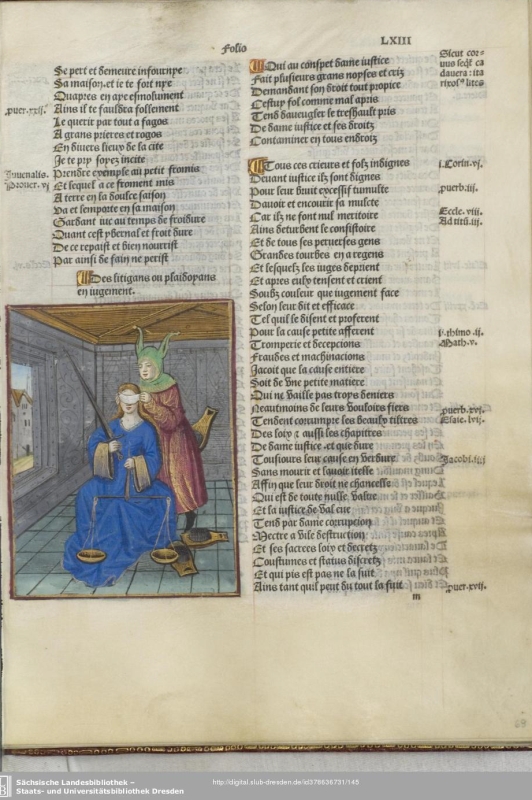 Folio
LXIII
Se pert et demeure infournye
Sa maison, et ie te fort nye
Quapres en aye esmolument
Ains il te fauldra follement
Le querir par tout a fagos
A grans prieres et rogos
En diuers lieux de la cite
Je te pry soyez incite
Prendre exemple au petit fromis
Et lequel a ce froment mis
A terre en la doulce saison
Va et lemporte en sa maison
Gardant iuc au temps de froidure
Quant cest ybernal et froit dure
De ce repaist et bien nourrist
Par ainsi de fain ne perist
Des litigans ou plaidoyans
en iugement.
puer.xxij.
Juuenalis.
Prouer. vj
Qui au conspet dame iustice
Fait plusieurs grans noyses et criz
Demandant son droit tout propice
Cestuy fol comme mal apris
Tend daueugler le treshault pris
De dame iustice et ses droitz
Contaminer en tous endroiz
Tous ces crieurs et folz indignes
Deuant iustice ilz sont dignes
Pour leur bruit excessif tumulte
Dauoir et encourir sa mulcte
Car ilz ne font nul meritoire
Ains deturbent le consistoire
Et de tous ses peruerses gens
Grandes tourbes en a regens
Et lesquelz les iuges deprient
Et apres eulx tensent et crient
Soubz couleur que iugement face
Selon leur dit et efficace
Tel quil le disent et proferent
Pour la cause petite afferent
Tromperie et decepcions
Fraudes et machinacions
Jacoit que la cause entiere
Soit de vne petite matiere
Qui ne vaille pas trops deniers
Neautmoins de leurs vouloirs fiers
Tendent corrumpre les beaulx tiltres
Des loix et aussi les chapitres
De dame iustice et que dure
Tousiours leur cause en verdure
Sans mourir et lauoir itelle
Affin que leur droit ne chancelle
Qui est de toute nulle value
Et la iustice de val eue
Tend par dame corrupcion
Mectre a vile destruction
Et ses sacrees loix et decretz
Coustumes et status discretz
Et qui pis est pas ne la suit
Ains tant quil peut du tout la fuit
m
Sicut cor-
uus
i. Corin. vj.
puerb. iij.
Eccle. viij.
Ad titū. iij.
j. thimo .ij.
Math. v.
puerb. xvj.
Esaie. lvij.
Jacobi. iiij
puer. xvij.
Sächsische Landesbibliothek –
Staats- und Universitätsbibliothek Dresden
http://digital.slub-dresden.de/id378636731/145